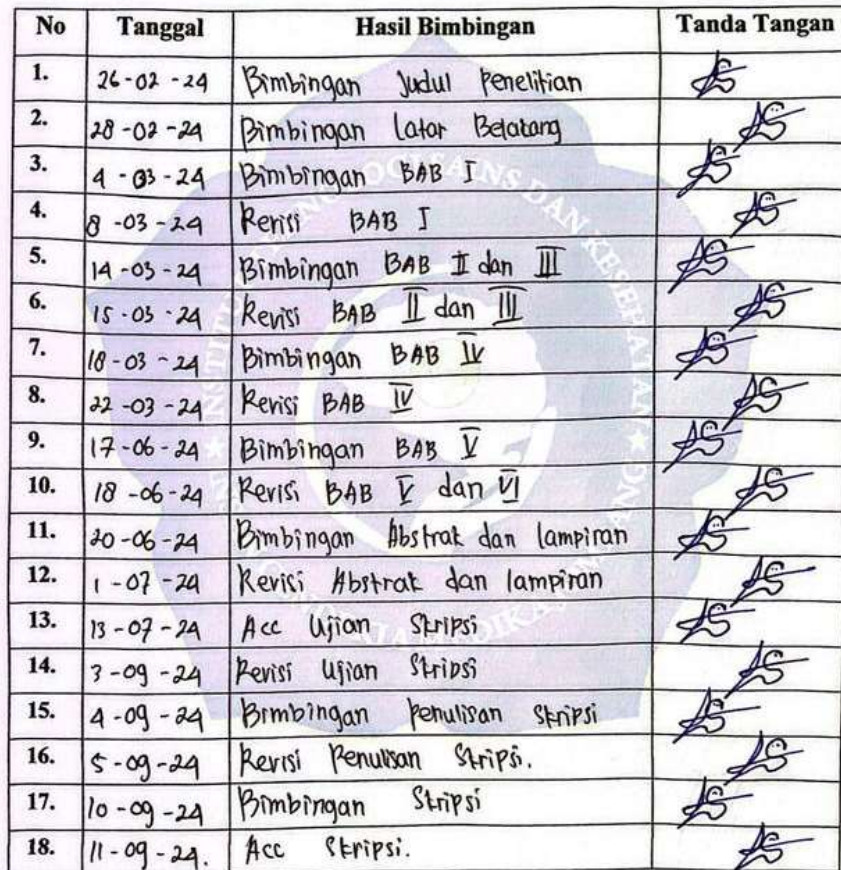 No Tanggal Hasil Bimbingan Tanda Tangan
1. 26-02-24 Bimbingan Judul Penelitian
2. 28-02-24 Bimbingan Latar Belakang
3. 4-03-24 Bimbingan BAB I
4. 8-03-24 Revisi BAB I
5. 14-03-24 Bimbingan BAB II dan III
6. 15-03-24 Revisi BAB II dan III
7. 18-03-24 Bimbingan BAB IV
8. 22-03-24 Revisi BAB IV
9. 17-06-24 Bimbingan BAB V
10. 18-06-24 Revisi BAB V dan VI
11. 20-06-24 Bimbingan Abstrak dan lampiran
12. 1-07-24 Revisi Abstrak dan lampiran
13. 13-07-24 Acc Ujian Skripsi
14. 3-09-24 Revisi Ujian Skripsi
15. 4-09-24 Bimbingan Penulisan Skripsi
16. 5-09-24 Revisi Penulisan Skripsi.
17. 10-09-24 Bimbingan Skripsi
18. 11-09-24. Acc Skripsi.